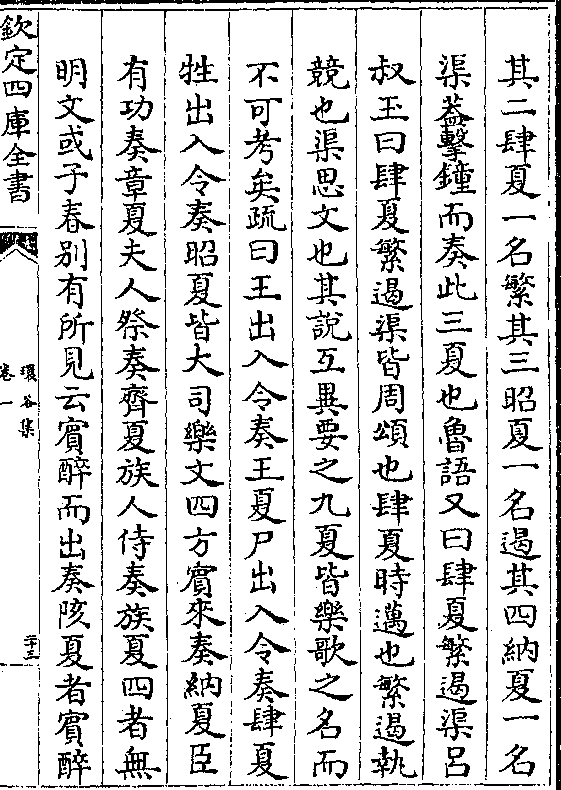 其二肆夏一名繁其三昭夏一名遏其四納夏一名
渠葢擊鐘而奏此三夏也魯語又曰肆夏繁遏渠呂
叔玉曰肆夏繁遏渠皆周頌也肆夏時邁也繁遏執
競也渠思文也其說互異要之九夏皆樂歌之名而
不可考矣疏曰王出入令奏王夏尸出入令奏肆夏
牲出入令奏昭夏皆大司樂文四方賓來奏納夏臣
有功奏章夏夫人祭奏齊夏族人侍奏族夏四者無
明文或子春別有所見云賓醉而出奏陔夏者賓醉
欽定四庫全書
環谷集
卷一
二十三